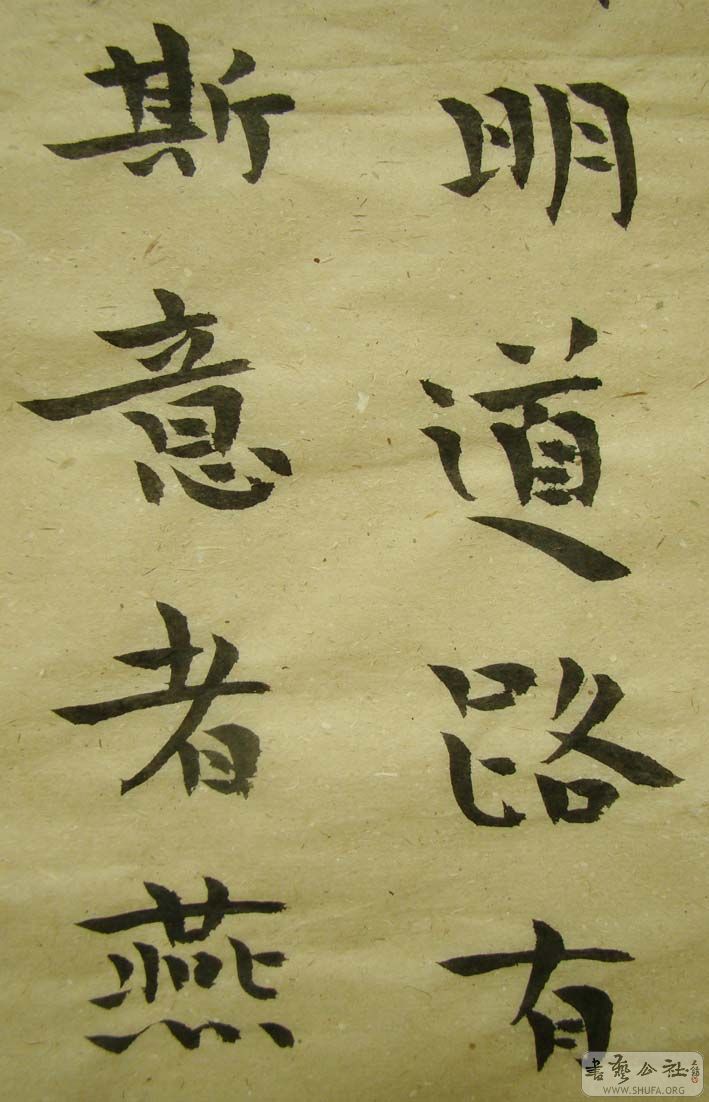 明道路有
斯意者燕
書藝公社
WWW.SHUFA.ORG